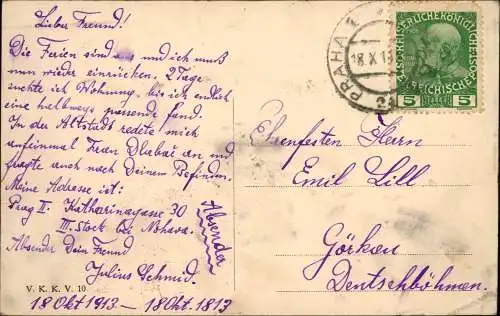 Lieber Freund!
Die Ferien sind aus und ich muß
nun wieder einrücken. 2 Tage
suchte ich Wohnung, bis ich endlich
eine halbwegs passende fand.
In der Altstadt redete mich
aufeinmal Frau Dlabač an und
fragte auch nach Deinem Befinden.
Meine Adresse ist:
Prag II. Katharinagasse 30
III. Stock bei Nohava.
Absender Dein Freund
Julius Schmid.
Absender
18 Okt 1913 — 18 Okt. 1813
V. K. K. V. 10
PRAHA 1
18 X 13
5 HELLER 5
Ehrenfesten Herrn
Emil Lill
Görkau
Deutschböhmen.